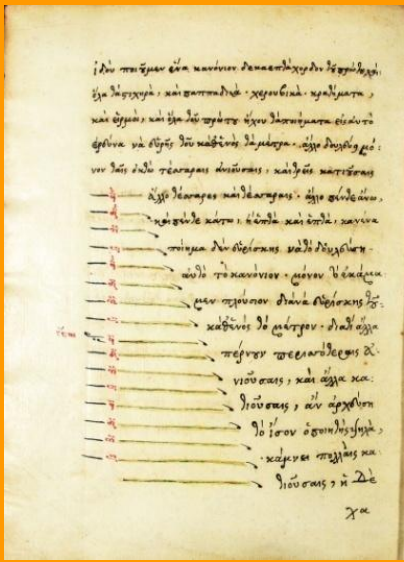 ἰδοὺ ποιοῦμεν ἕνα κανόνιον δεκαεπτάχορδον τοῦ πρώτου ἤχου
ὅλα τὰ στιχηρά, καὶ παππαδικὰ · χερουβικὰ · κρατήματα,
καὶ εἱρμοὶ, καὶ ὅλα τοῦ πρώτου ἤχου τὰ ποιήματα εἰς αὐτὸ
ἐρεύνα νὰ εὕρῃς τοῦ καθενὸς τὰ μέτρα · ἄλλο δουλεύει μό:
νον ταῖς ὀκτὼ τέσσαραις ἀνιούσαις, καὶ τρεῖς κατιούσαις
ἄλλο τέσσαρες καὶ τέσσαραις · ἄλλο πέντε ἄνω,
καὶ πέντε κάτω, ἢ ἑπτὰ καὶ ἑπτὰ, κανένα
ποίημα δὲν εὑρίσκης νὰ τὸ δουλεύση ·
αὐτὸ τὸ κανόνιον · μόνον τὸ ἐκάμα
μεν πλούσιον διὰ νὰ εὑρίσκης τοῦ
καθενὸς τὸ μέτρον · διατὶ ἄλλα
πέρνουν περισσότεραις ἀ:
νιούσαις, καὶ ἄλλα κα:
τιούσαις, ἂν ἀρχεύση
τὸ ἴσον ὁ ποιητὴς ψηλὰ,
κάμνει πολλαῖς κα:
τιούσαις, ἢ Δὲ
χα